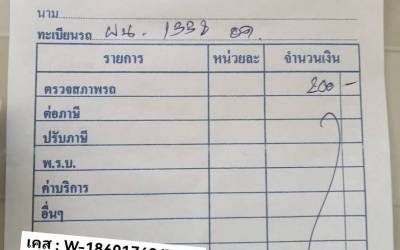 นาม
ทะเบียนรถ ผน. 1338 อด.
รายการ หน่วยละ จำนวนเงิน
ตรวจสภาพรถ 200 -
ต่อภาษี
ปรับภาษี
พ.ร.บ.
ค่าบริการ
อื่นๆ
เคส : W-1860176